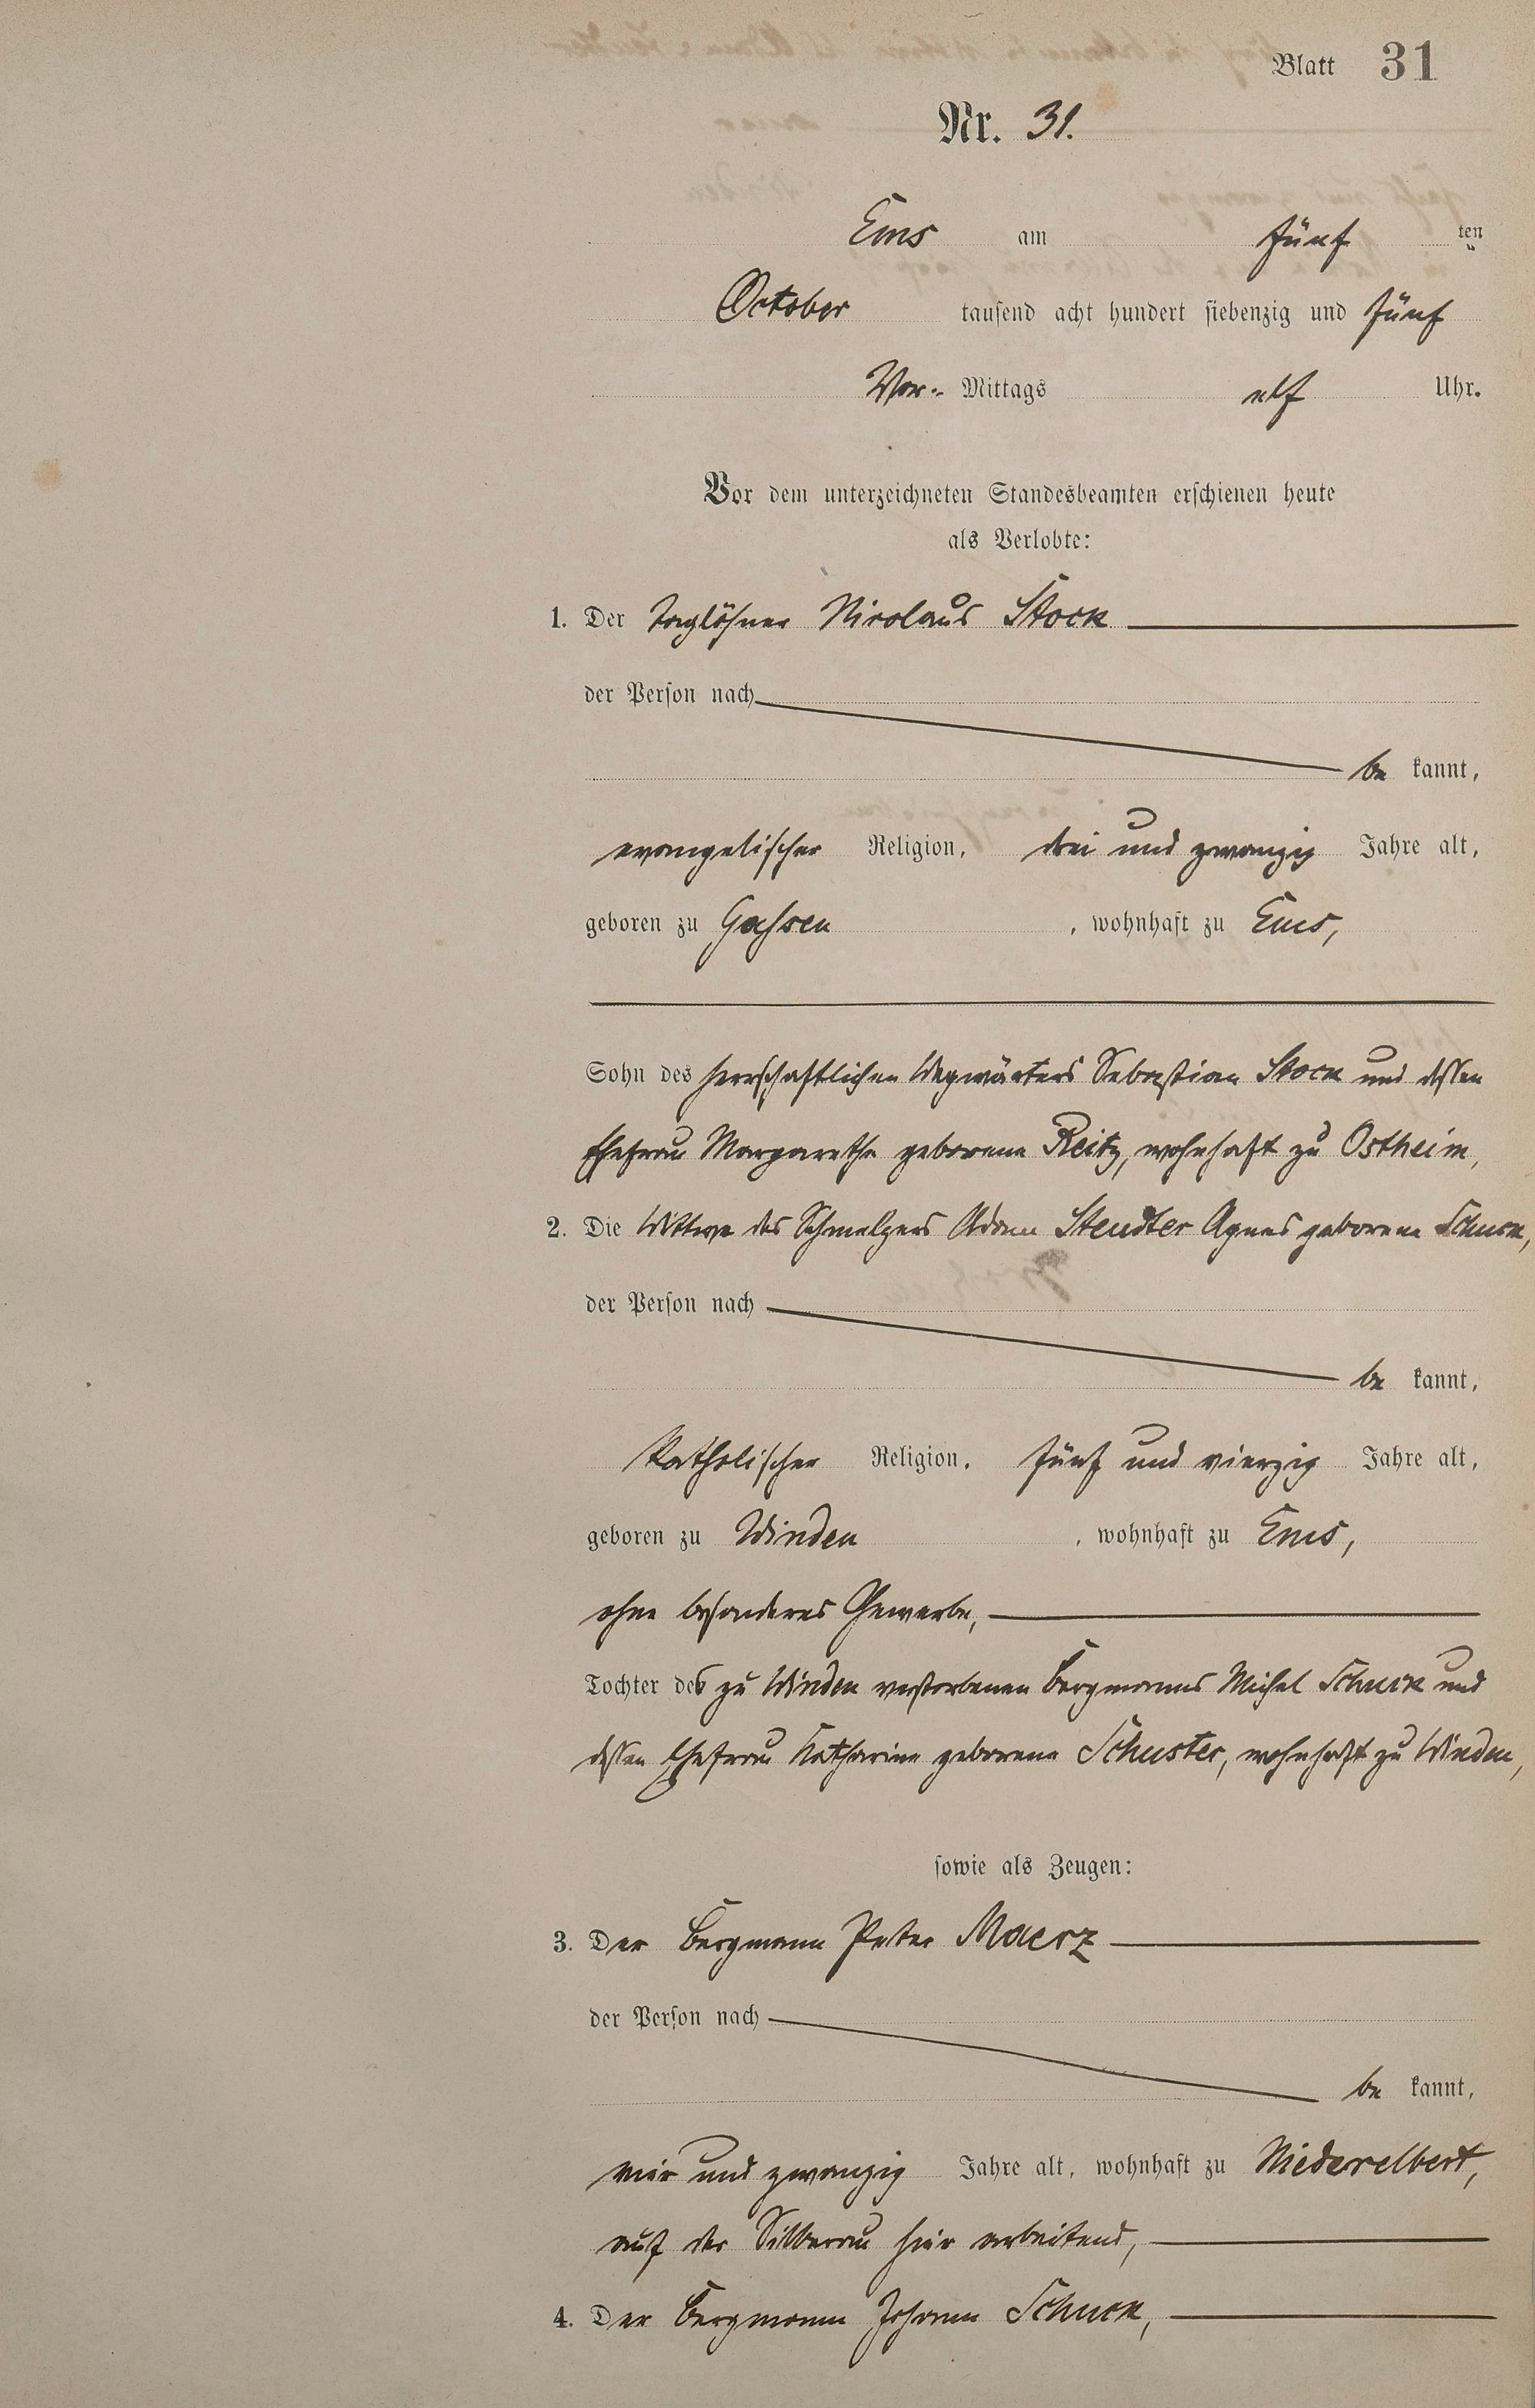 Blatt 31
Nr. 31.
Ems am fünf ten
October tausend acht hundert siebenzig und fünf
Vor- Mittags elf Uhr.
Vor dem unterzeichneten Standesbeamten erschienen heute
als Verlobte:
1. Der Taglöhner Nicolaus Stock
der Person nach
be kannt,
evangelischer Religion, drei und zwanzig Jahre alt,
geboren zu , wohnhaft zu Ems,
Sohn des herrschaftlichen Wegwärters Sebastian Stock und dessen
Ehefrau Margarethe geborene Reitz, wohnhaft zu Ostheim,
2. Die Wittwe des Schmelzers Adam Steudter Agnes geborene Schuck,
der Person nach
be kannt,
katholischer Religion, fünf und vierzig Jahre alt,
geboren zu Winden , wohnhaft zu Ems,
ohne besonderes Gewerbe,
Tochter des zu Winden verstorbenen Bergmanns Michel Schuck und
dessen Ehefrau Katharine geborene Schuster, wohnhaft zu Winden,
sowie als Zeugen:
3. Der Bergmann Peter Maerz
der Person nach
be kannt,
vier und zwanzig Jahre alt, wohnhaft zu Niederelbert,
auf der Silberau hier arbeitend,
4. Der Bergmann Johann Schuck,